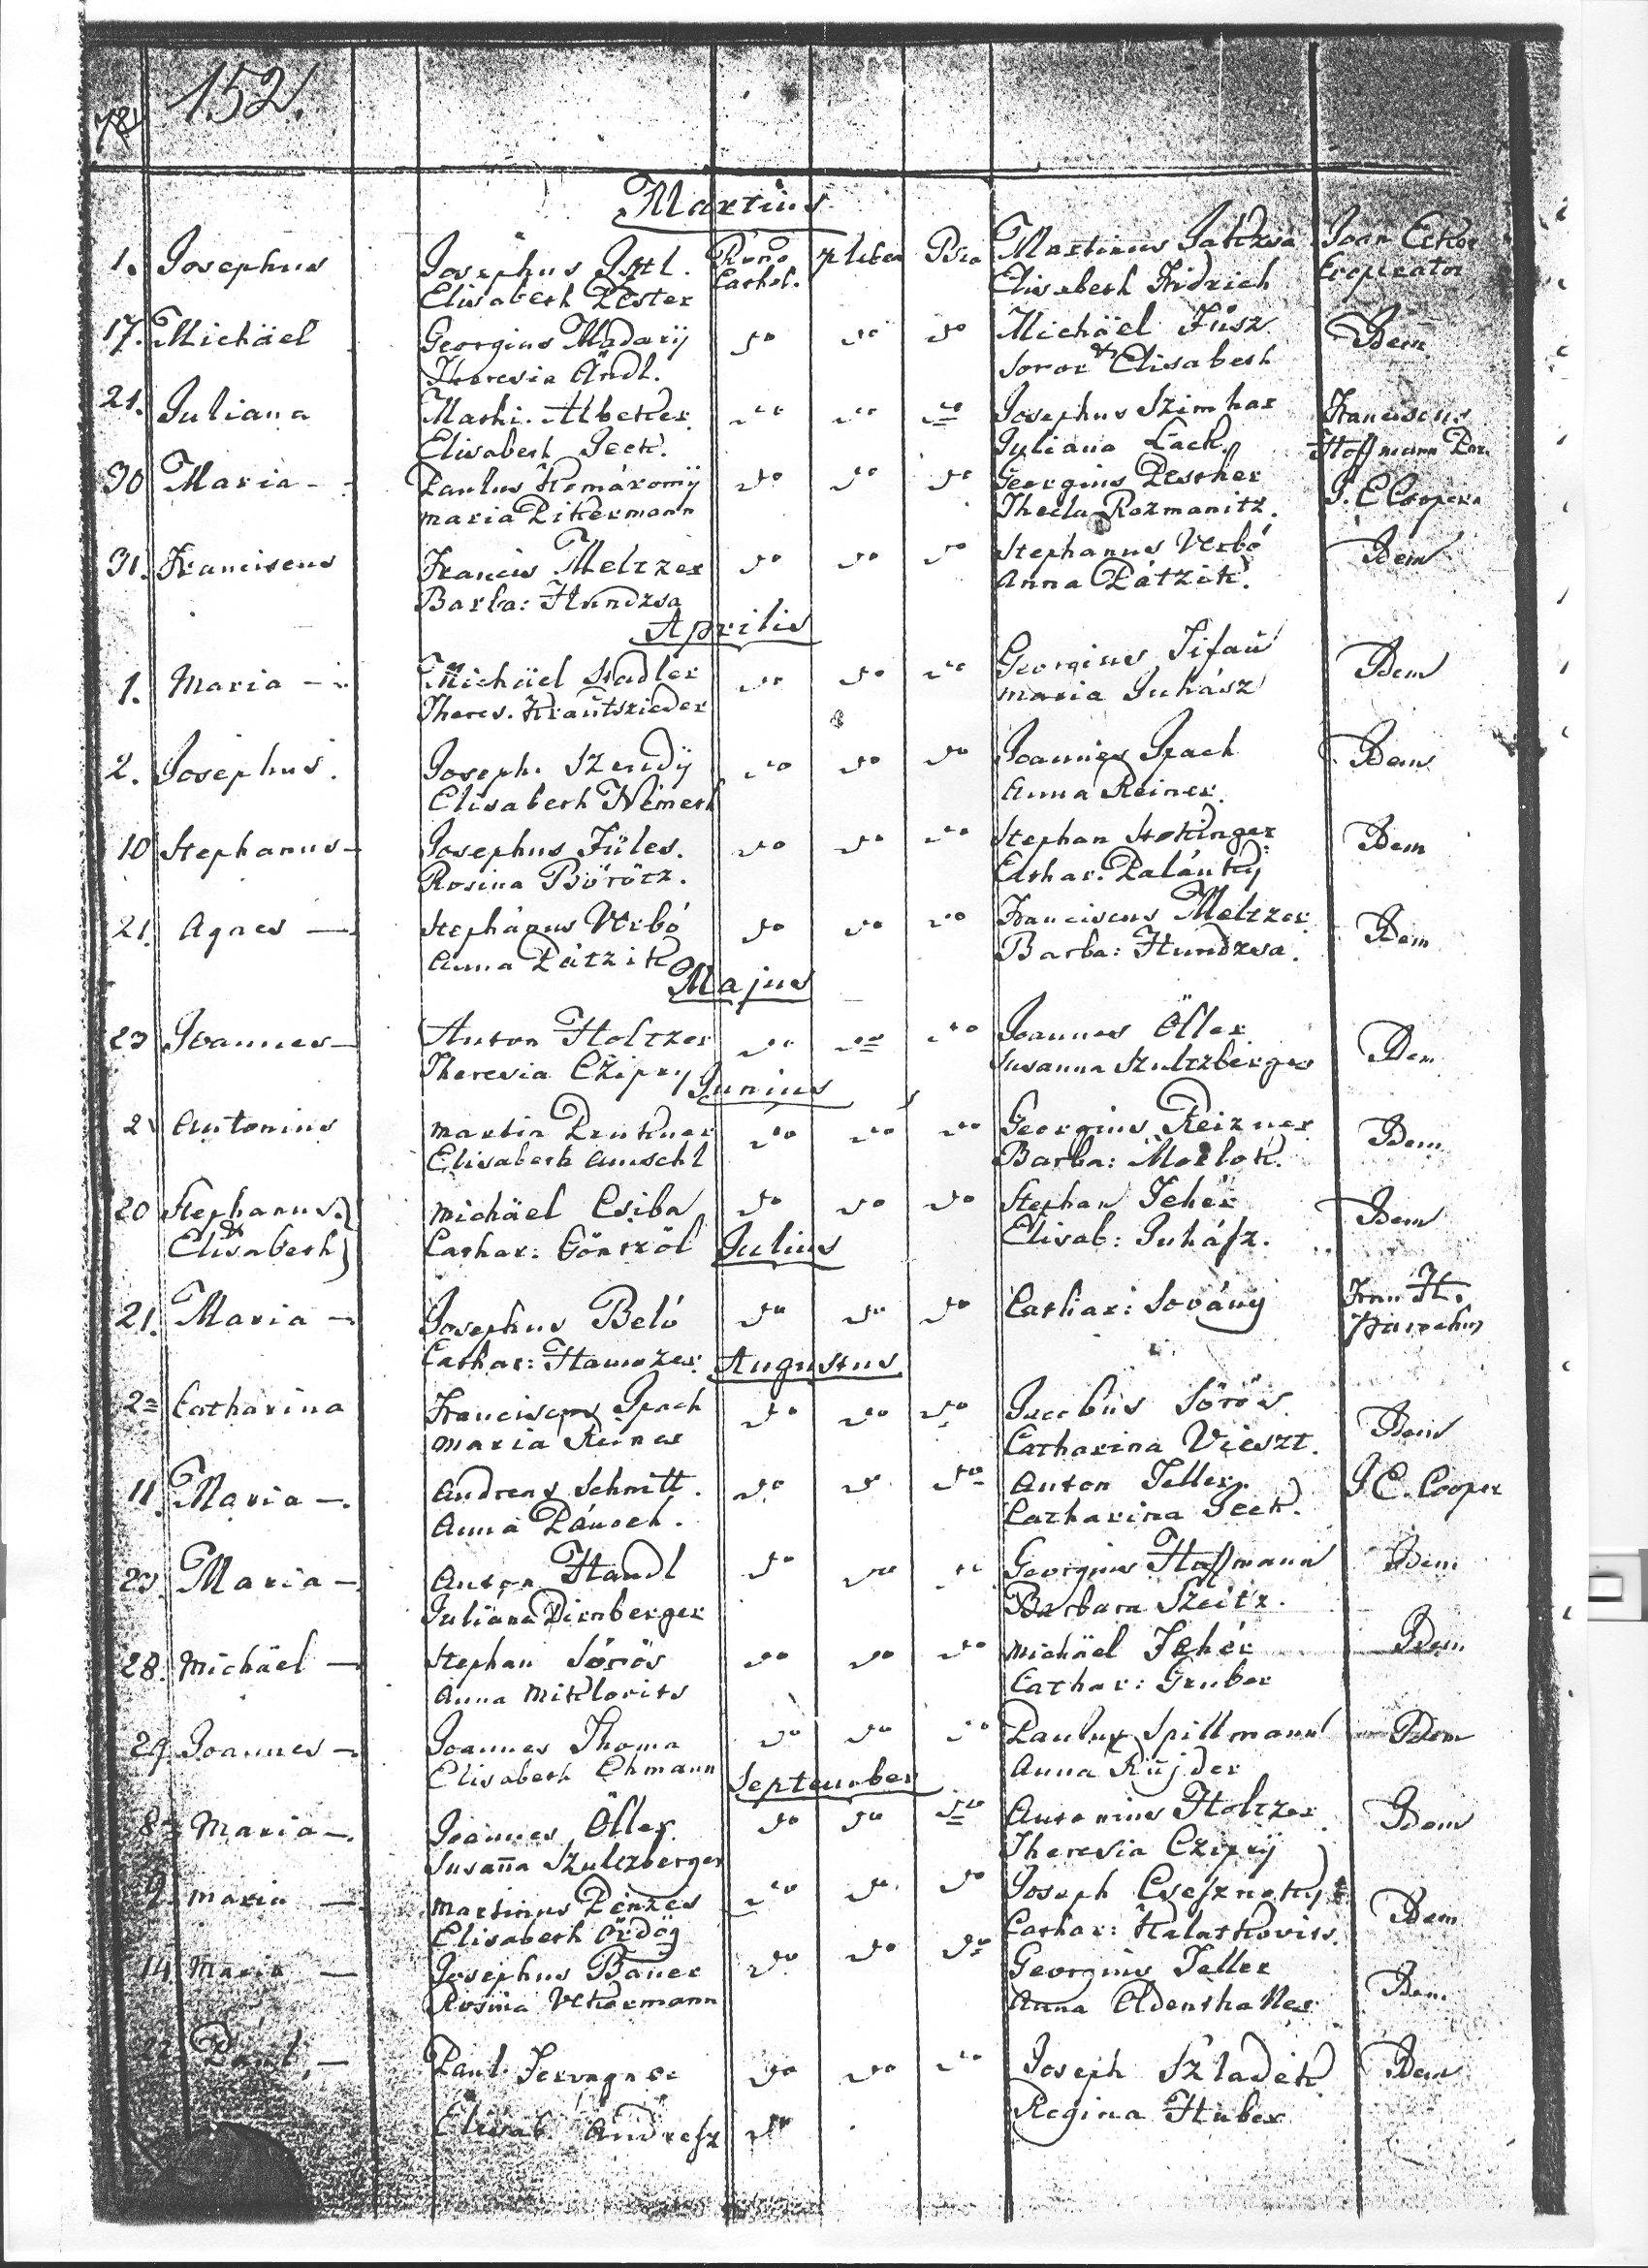 152.
Martius
1. Josephus Josephus Rono Cathol. Pleber Martinus Joan Eckor
Elisabeth Pester Elisabeth Fridrich Cooperator
17. Michäel Georgius Madarÿ do do do Michäel Füsz Idem
Theresia Ändl. Soror & Elisabeth
21. Juliana Mathi. Albeker do do do Josephus Szimhar Franciscus
Elisabeth Jeck. Juliana Lack. Hoffmann Par.
30 Maria - Paulus Komáromÿ do do do Georgius Pesther J. E Coopera
maria Pikermann Thecla Rozmanitz.
31. Franciscus Francis Meltzer do do do Stephanus Verbó Idem
Barba: Hundzsa Anna Pátzik.
Aprilis
1. Maria - Michäel Stadler do do do Georgius Tifaü Idem
Theres. Krautszieder maria Juhász
2. Josephus. Joseph. Szendÿ do do do Joannes Ipach Idem
Elisabeth Nemeth Anna Reiner.
10 Stephanus - Josephus Füles. do do do Stephan Stokinger Idem
Rosina Börötz. Cathar. Palánkÿ
21. Agnes - Stephanus Verbó do do do Franciscus Meltzer Idem
Anna Pátzik Barba: Hundzsa.
Majus
23 Joannes - Anton Holtzer do do do Joannes Öller Idem
Theresia Czipry Susanna Szultzberger
Junius
2 Antonius Martin Prukner do do do Georgius Reizner Idem
Elisabeth Amschl Barba: Morlok.
20 Stephanus. michäel Csiba do do do Stephan Fehér Idem
& Elisabeth Cathar: Gönczöl Elisab: Juhász.
Julius
21. Maria - Josephus Beló do do do Cathar: Sovány Fran H.
Cathar: Hamozer Parochus
Augustus
2= Catharina Franciscus Ipach do do do Jacobus Sörös Idem
maria Reiner Catharina Vieszt.
11. Maria -. Andreas Schmitt. do do do Anton Teller. J E. Cooper
Anna Pausch. Catharina Jeck.
23 Maria - Anton Handl do do do Georgius Hoffmann Idem
Juliana Dirnberger Barbara Szeitz.
28. Michäel - Stephan Sörös do do do Michäel Fehér Idem
Anna Miklovits Cathar: Gruber
29 Joannes - Joannes Thoma do do do Paulus Spillmann Idem
Elisabeth Ehmann Anna Rujder
September
8= Maria -. Joannes Öller. do do do Antonius Holtzer Idem
Susanna Szultzberger Theresia Czipry
9. maria - Martinus Pénzes do do do Joseph Csesznekÿ Idem
Elisabeth Ördög Cathar: Kalatkovits.
14. Maria - Josephus Bauer do do do Georgius Teller Idem
Rosina Ukermann Anna Oldenthaller
22 Paul - Paul. Fervagner do do do Joseph Szladek Idem
Elisab. Andresz do Regina Huber